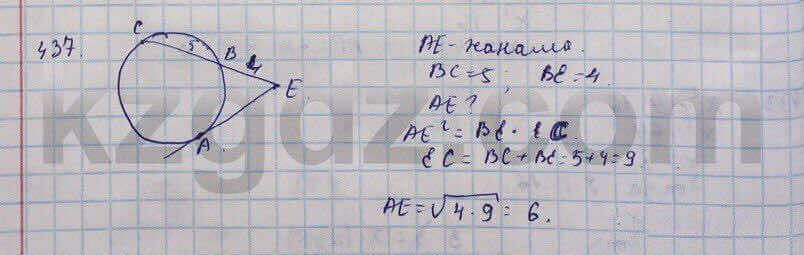 437.
C
5
B
4
E
A
AE - жанама.
BC = 5; BE = 4.
AE?
AE² = BE · EC
EC = BC + BE = 5 + 4 = 9.
AE = √4·9 = 6.
kzgdz.com